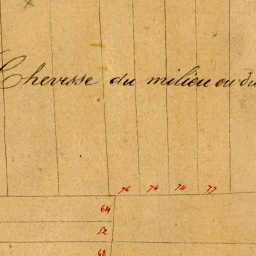 Chevesse du milieu ou du
76 74 711 77
64
52
60